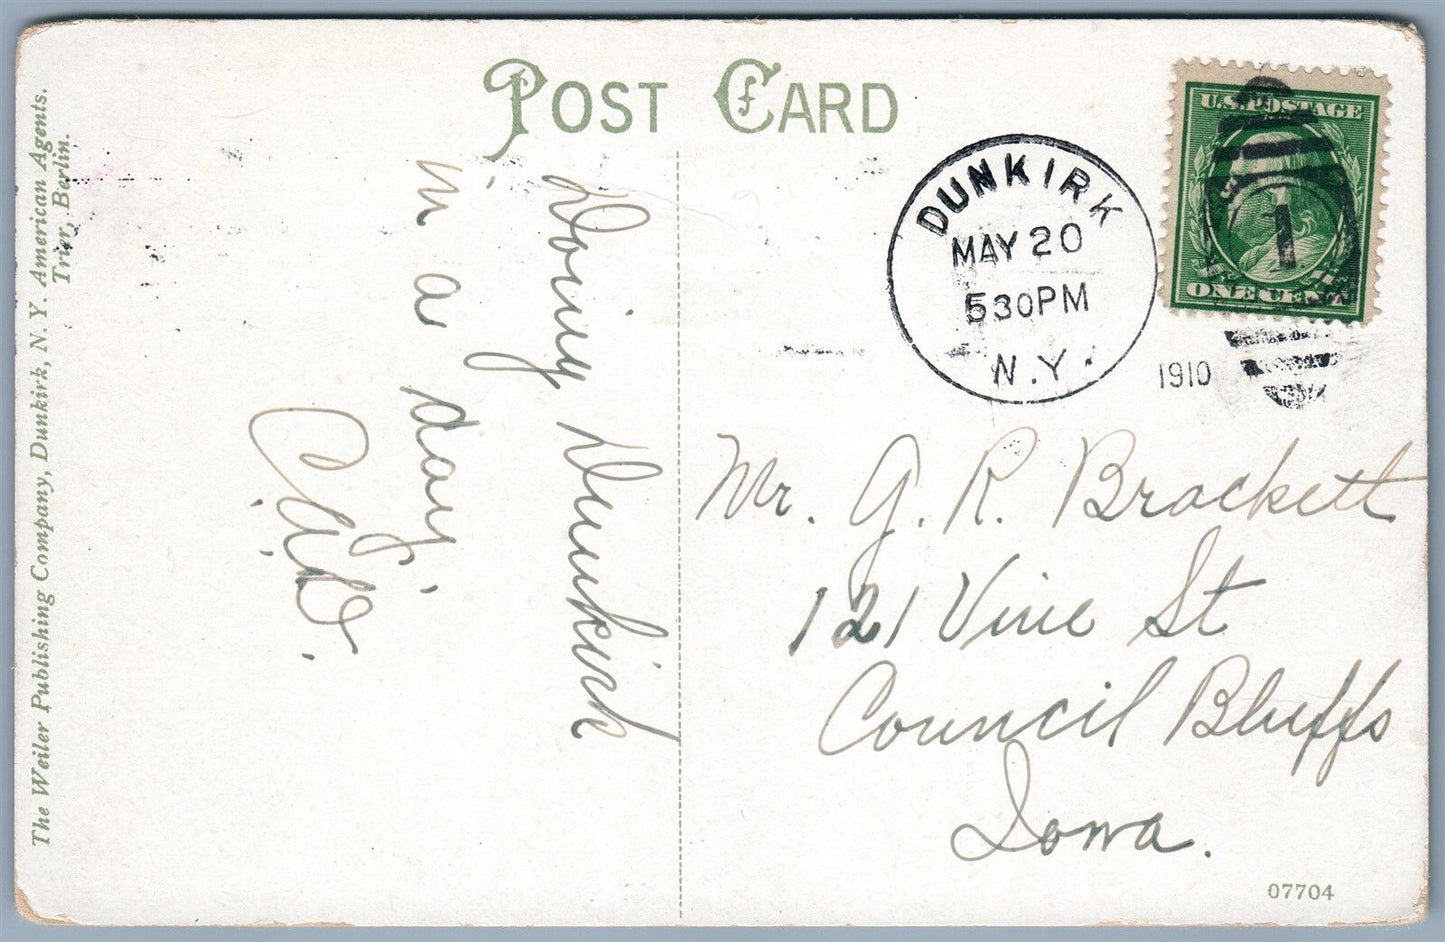 POST CARD
U.S. POSTAGE
ONE CENT
1
DUNKIRK
MAY 20
530PM
N.Y.
1910
Doing Dunkirk
in a day.
C.A.B.
Mr. G. R. Brackett
121 Vine St
Council Bluffs
Iowa.
The Weiler Publishing Company, Dunkirk, N. Y. American Agents.
Trier, Berlin.
07704